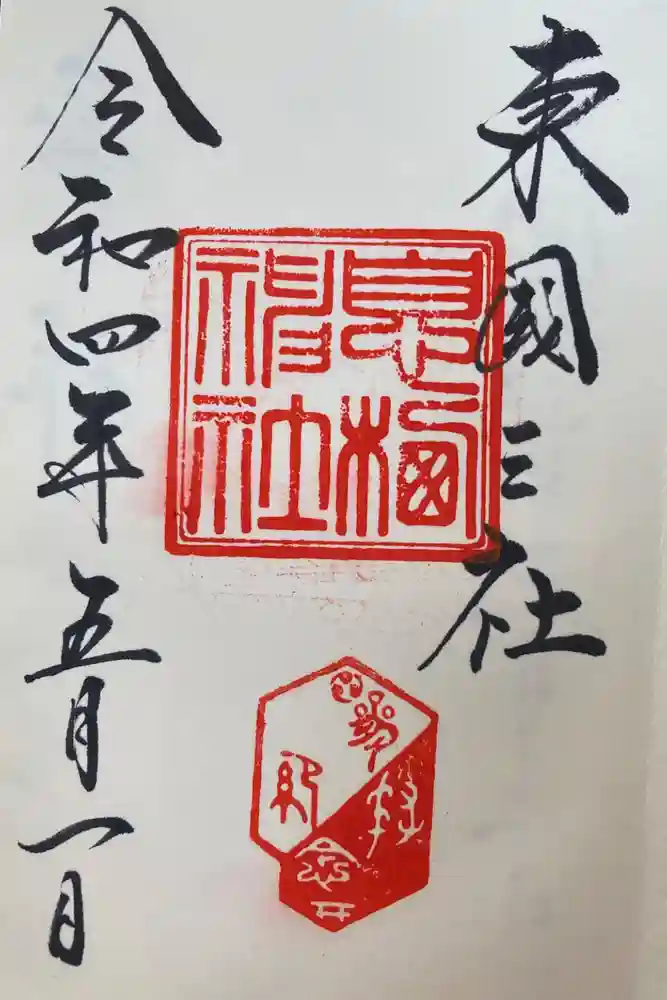 東國三社
息栖神社
令和四年五月一日